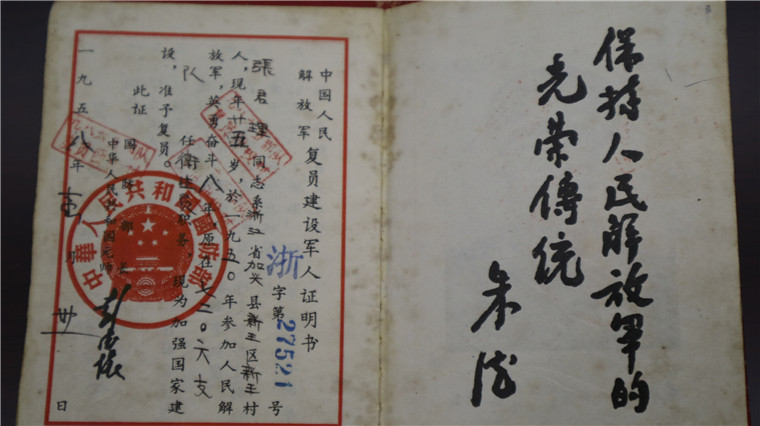 保持人民解放军的
光荣傳統
朱德
中国人民
解放军
复员建设军人证明书
浙字第27521号
張君理同志系浙江省加兴县新王区新王村
人，现年廿五岁，於一九五〇年参加人民解
放军，英勇奋斗八年，原在七二〇六支
队任职务，现为加强国家建
设，准予复员。
此证
国防部长
中华人民共和国元帅
彭德怀
一九五八年月廿日
中華人民共和国国防部